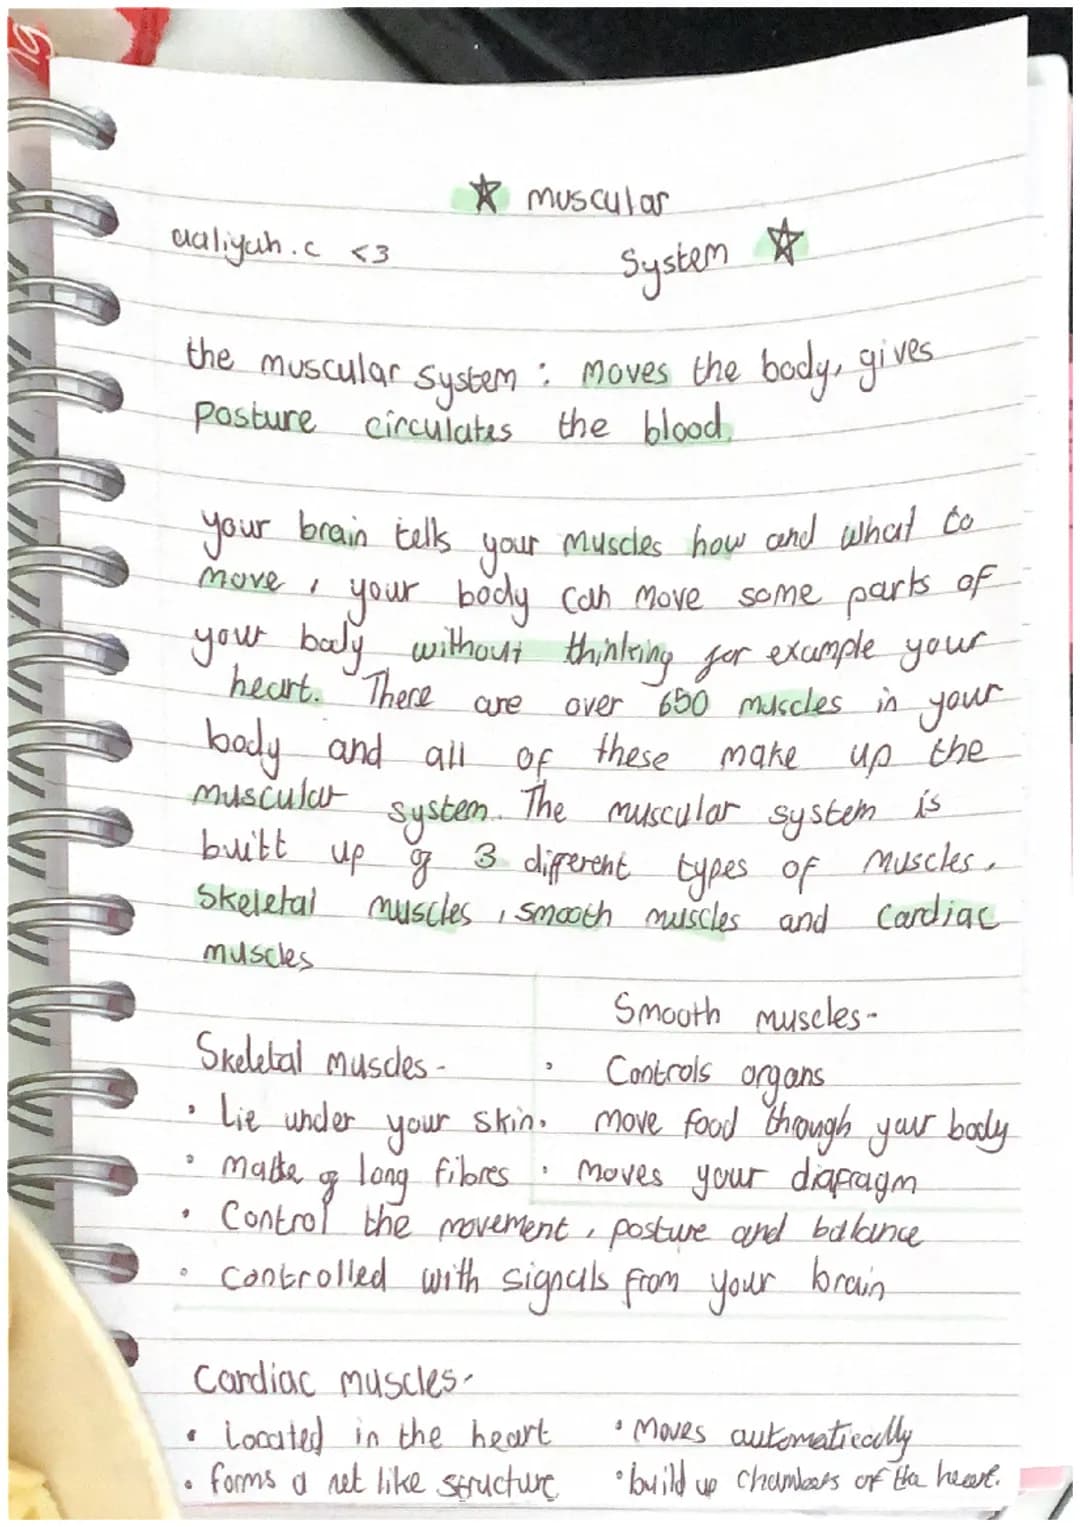 ☆ muscular
aaliyah.c <3
System ☆
the muscular system : moves the body, gives
posture circulates the blood.
your brain tells your muscles how and what to
move, your body can move some parts of
your body without thinking for example your
heart. There are over 650 muscles in your
body and all of these make up the
muscular system. The muscular system is
built up of 3 different types of muscles.
Skeletal muscles, smooth muscles and Cardiac
muscles
Skeletal muscles-
• Lie under your skin.
• made of long fibres
• Control the movement, posture and balance
• controlled with signals from your brain
Smooth muscles-
• Controls organs
move food through your body
• moves your diafragm
Cardiac muscles-
• Located in the heart
• forms a net like structure
• Moves automatically
• build up chambers of the heart.